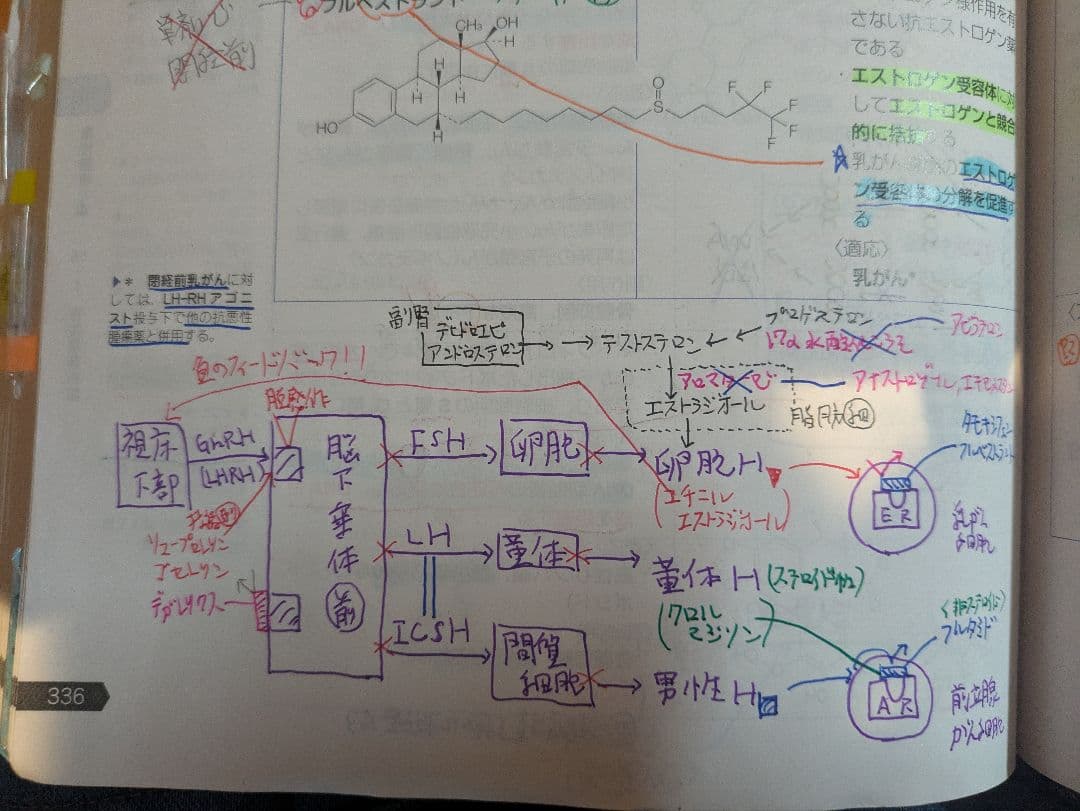 単剤
閉経前
フルベストラント
CH₃
OH
H
H
H
H
H
HO
O
S
F
F
F
F
F
さない抗エストロゲン薬
である
・エストロゲン受容体に対
してエストロゲンと競合
的に拮抗する
☆乳がん細胞のエストロゲ
ン受容体の分解を促進す
る
〈適応〉
乳がん*
▶* 閉経前乳がんに対
しては、LH-RHアゴニ
スト投与下で他の抗悪性
腫瘍薬と併用する。
副腎
デヒドロエピ
アンドロステロン
テストステロン
プロゲステロン
17α水酸化
アビラテロン
アロマターゼ
アナストロゾール,エキセメスタン
エストラジオール
脂肪細
負のフィードバック!!
脱感作
視床
下部
GnRH
(LHRH)
脳
下
垂
体
前
FSH
卵胞
卵胞H
(エチニル
エストラジオール)
タモキシフェン
フルベストラント
ER
乳がん
細胞
リュープロレリン
ゴセレリン
デガレリクス
LH
黄体
黄体H
(ステロイド性)
(クロル
マジノン)
ICSH
間質
細胞
男性H
(非ステロイド)
フルタミド
AR
前立腺
がん細胞
336